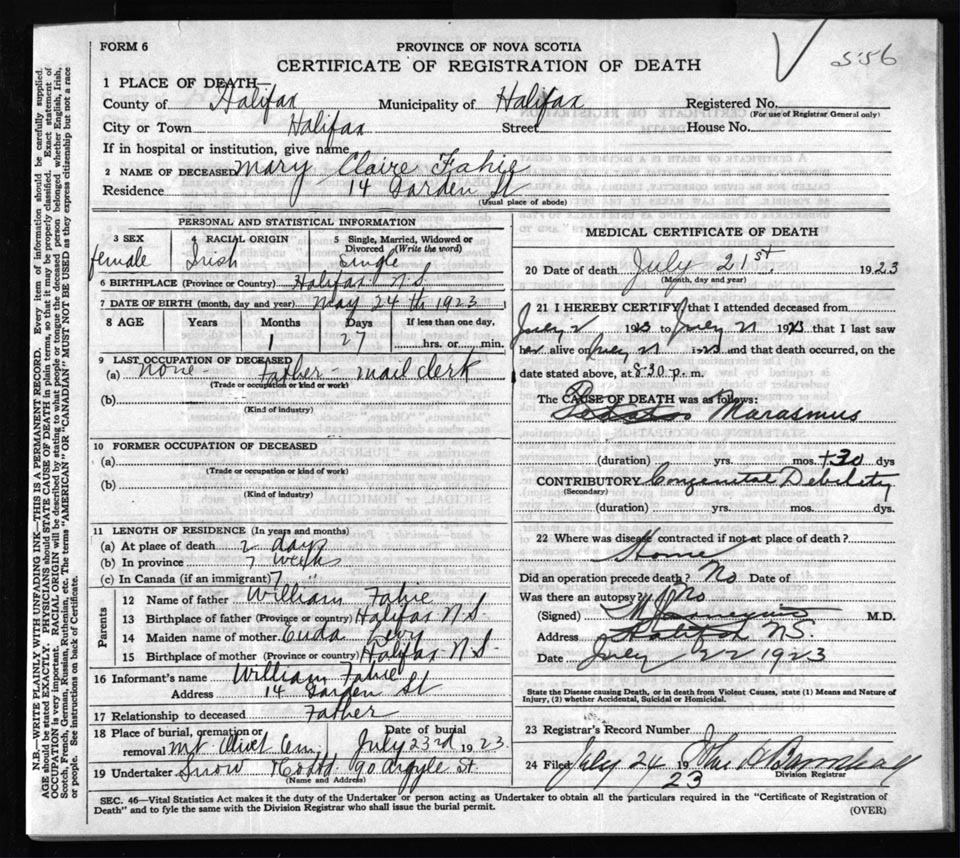 FORM 6
PROVINCE OF NOVA SCOTIA
556
CERTIFICATE OF REGISTRATION OF DEATH
1 PLACE OF DEATH—
County of Halifax Municipality of Halifax Registered No.
(For use of Registrar General only)
City or Town Halifax Street House No.
If in hospital or institution, give name
2 NAME OF DECEASED Mary Claire Fahie
Residence 14 Garden St
(Usual place of abode)
PERSONAL AND STATISTICAL INFORMATION
3 SEX 4 RACIAL ORIGIN 5 Single, Married, Widowed or Divorced (Write the word)
female Irish Single
6 BIRTHPLACE (Province or Country) Halifax N.S.
7 DATE OF BIRTH (month, day and year) May 24th 1923
8 AGE Years Months Days If less than one day,
1 27 hrs. or min.
9 LAST OCCUPATION OF DECEASED
(a) none - Father - mail clerk
(Trade or occupation or kind or work)
(b)
(Kind of industry)
10 FORMER OCCUPATION OF DECEASED
(a)
(Trade or occupation or kind of work)
(b)
(Kind of industry)
11 LENGTH OF RESIDENCE (In years and months)
(a) At place of death 2 days
(b) In province 7 weeks
(c) In Canada (if an immigrant) 7 "
Parents
12 Name of father William Fahie
13 Birthplace of father (Province or country) Halifax N.S.
14 Maiden name of mother Levy
15 Birthplace of mother (Province or country) Halifax N.S.
16 Informant's name William Fahie
Address 14 Garden St
17 Relationship to deceased Father
18 Place of burial, cremation or removal Mt Olivet Cem Date of burial July 23rd 1923.
19 Undertaker Snow 90 Argyle St.
(Name and Address)
MEDICAL CERTIFICATE OF DEATH
20 Date of death July 21st 1923
(Month, day and year)
21 I HEREBY CERTIFY, that I attended deceased from
July 2 1923 to July 21 1923 that I last saw
her alive on July 21 1923 and that death occurred, on the
date stated above, at 8:30 p.m.
The CAUSE OF DEATH was as follows:
Marasmus
(duration) yrs. mos. +30 dys
CONTRIBUTORY Congenital Debility
(Secondary)
(duration) yrs. mos. dys.
22 Where was disease contracted if not at place of death?
Home
Did an operation precede death? No Date of
Was there an autopsy? No
(Signed) M.D.
Address Halifax N.S.
Date July 22 1923
State the Disease causing Death, or in death from Violent Causes, state (1) Means and Nature of
Injury, (2) whether Accidental, Suicidal or Homicidal.
23 Registrar's Record Number
24 Filed July 24 1923
Division Registrar
SEC. 46—Vital Statistics Act makes it the duty of the Undertaker or person acting as Undertaker to obtain all the particulars required in the "Certificate of Registration of
Death" and to fyle the same with the Division Registrar who shall issue the burial permit.
(OVER)
N.B.—WRITE PLAINLY WITH UNFADING INK—THIS IS A PERMANENT RECORD. Every item of information should be carefully supplied.
AGE should be stated EXACTLY. PHYSICIANS should STATE CAUSE OF DEATH in plain terms, so that it may be properly classified. Exact statement of
OCCUPATION is very important. RACIAL ORIGIN will be described by stating to what people or tongue the deceased person belonged whether English, Irish,
Scotch, French, German, Russian, Ruthenian, etc. The terms "AMERICAN" OR "CANADIAN" MUST NOT BE USED as they express citizenship but not a race
or people. See instructions on back of Certificate.